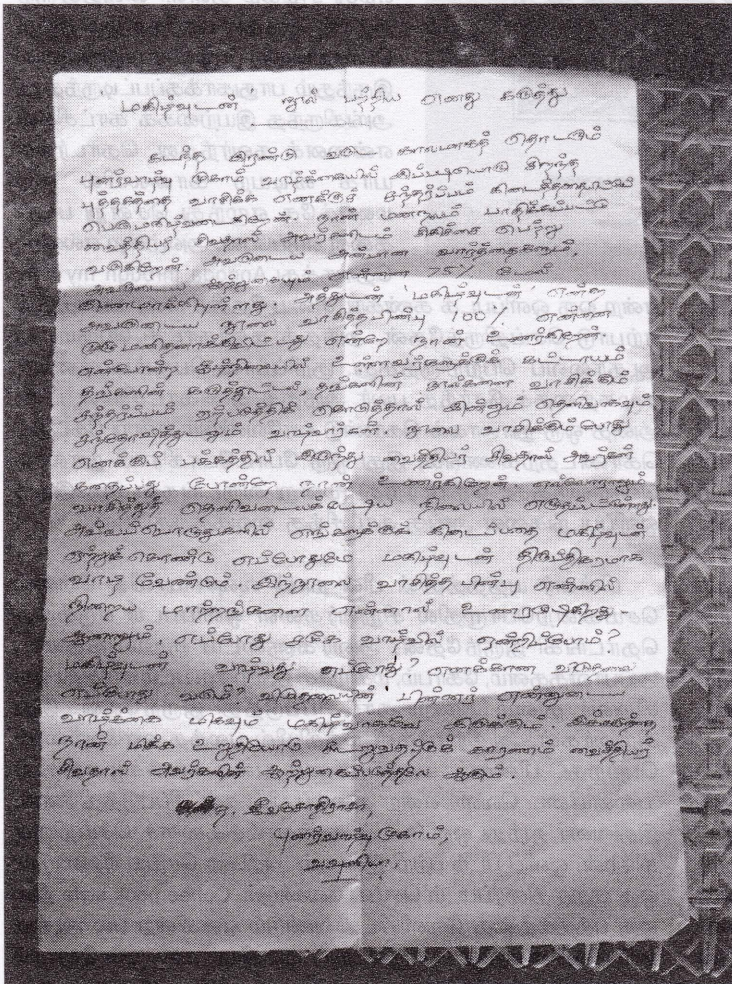 'மகிழ்வுடன்' நூல் பற்றிய எனது கருத்து
கடந்த இரண்டு வருட காலமாகத் தொடரும்
புனர்வாழ்வு முகாம் வாழ்க்கையில் இப்படியொரு சிறந்த
புத்தகத்தை வாசிக்க எனக்குச் சந்தர்ப்பம் கிடைத்ததையிட்டு
பெருமகிழ்வடைகிறேன். நான் மனதாலும் பாதிக்கப்பட்டு
வைத்தியர் சிவதாஸ் அவர்களிடம் சிகிச்சை பெற்று
வருகிறேன். அவருடைய அன்பான வார்த்தைகளும்,
அவருடைய ஆற்றுகையும் என்னை 75% மேல்
குணமாக்கியுள்ளது. அத்துடன் 'மகிழ்வுடன்' என்ற
அவருடைய நூலை வாசித்தபின்பு 100% என்னை
முழு மனிதனாக்கிவிட்டது என்றே நான் உணர்கிறேன்
என்போன்ற இந்நிலையில் உள்ளவர்களுக்குக் கட்டாயம்
தங்களின் கருத்தூட்டல், தங்களின் நூல்களை வாசிக்கும்
சந்தர்ப்பம் ஏற்படுத்திக் கொடுத்தால் இன்னும் தெளிவாகவும்
சந்தோஷித்துடனும் வாழ்வார்கள். நூலை வாசிக்கும் போது
எனக்குப் பக்கத்தில் இருந்து வைத்தியர் சிவதாஸ் அவர்கள்
கதைப்பது போன்றே நான் உணர்கிறேன் எல்லோராலும்
வாசித்துத் தெளிவடையக்கூடிய நிலையில் எழுதப்பட்டுள்ளது.
அவ்வப்பொழுதுகளில் எங்களுக்குக் கிடைப்பதை மகிழ்வுடன்
ஏற்றுக்கொண்டு எப்போதுமே மகிழ்வுடன் திருப்திகரமாக
வாழ வேண்டும். இந்நூலை வாசித்த பின்பு என்னில்
நிறைய மாற்றங்களை என்னால் உணரமுடிகிறது -
ஆனாலும், எப்போது சமூக வாழ்வில் என்றிலிபோம்?
மகிழ்வுடன் வாழ்வது எப்போது? எனக்கான விடுதலை
எப்போது வரும்? விடுதலையின் பின்னர் என்னுடைய
வாழ்க்கை மிகவும் மகிழ்வாகவே இருக்கும். இக்கூற்றை
நான் மிக்க உறுதியோடு கூறுவதற்குக் காரணம் வைத்தியர்
சிவதாஸ் அவர்களின் ஆற்றுகைப்படுத்தலே ஆகும்.
புனர்வாழ்வு முகாம்,
வவுனியா.